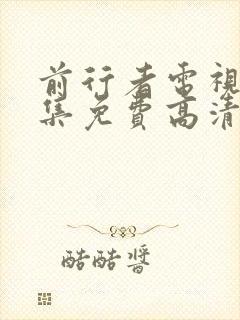 前行者電視
集免費高清
酷酷醬